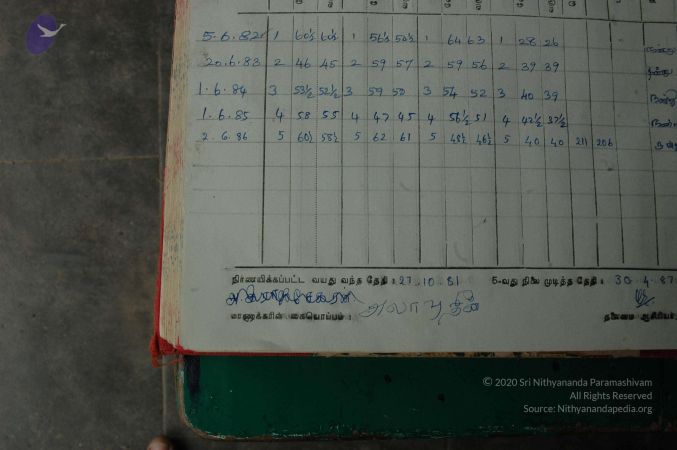 5.6.82 1 60½ 60½ 1 56½ 50½ 1 64 63 1 28 26
20.6.83 2 46 45 2 59 57 2 59 56 2 39 39
1.6.84 3 53½ 52½ 3 59 50 3 54 52 3 40 39
1.6.85 4 58 55 4 47 45 4 56½ 51 4 42½ 37½
2.6.86 5 60½ 58½ 5 62 61 5 48½ 46½ 5 40 40 211 206
நிர்ணயிக்கப்பட்ட வயது வந்த தேதி : 27.10.81 5-வது நிலை முடித்த தேதி : 30.4.87
மாணாக்கரின் கையொப்பம் : அலாவுதீன் தலைமை ஆசிரியர்
© 2020 Sri Nithyananda Paramashivam
All Rights Reserved
Source: Nithyanandapedia.org